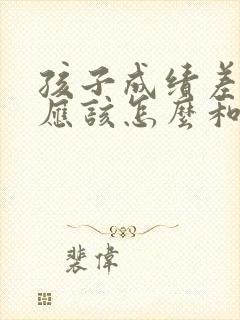 孩子成绩差
應該怎麼和
裴偉